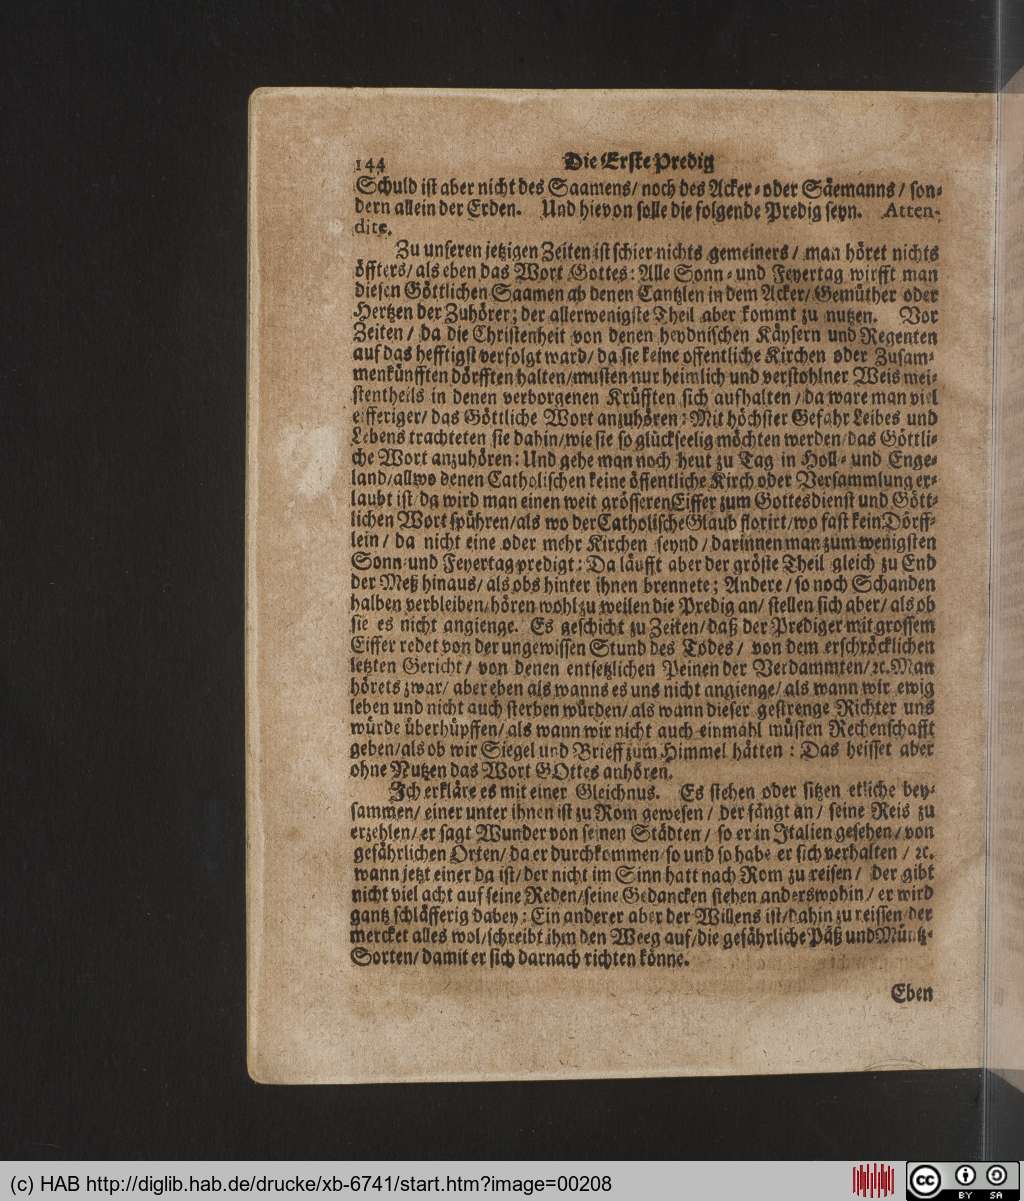 144 Die Erste Predig
Schuld ist aber nicht des Saamens/ noch des Acker- oder Säemanns/ son-
dern allein der Erden. Und hievon solle die folgende Predig seyn. Atten-
dite.
Zu unseren jetzigen Zeiten ist schier nichts gemeiners/ man höret nichts
öffters/ als eben das Wort Gottes: Alle Sonn- und Feyertag wirfft man
diesen Göttlichen Saamen ab denen Cantzlen in dem Acker/ Gemüther oder
Hertzen der Zuhörer; der allerwenigste Theil aber kommt zu nutzen. Vor
Zeiten/ da die Christenheit von denen heydnischen Käysern und Regenten
auf das hefftigst verfolgt ward/ da sie keine offentliche Kirchen oder Zusam-
menkünfften dörfften halten/ musten nur heimlich und verstohlner Weis mei-
stentheils in denen verborgenen Krüfften sich aufhalten/ da ware man viel
eifferiger/ das Göttliche Wort anzuhören: Mit höchster Gefahr Leibes und
Lebens trachteten sie dahin/ wie sie so glückseelig möchten werden/ das Göttli-
che Wort anzuhören: Und gehe man noch heut zu Tag in Holl- und Enge-
land/ allwo denen Catholischen keine öffentliche Kirch oder Versammlung er-
laubt ist/ da wird man einen weit grösseren Eiffer zum Gottesdienst und Gött-
lichen Wort spühren/ als wo der Catholische Glaub florirt/ wo fast kein Dörff-
lein/ da nicht eine oder mehr Kirchen seynd/ darinnen man zum wenigsten
Sonn- und Feyertag predigt: Da läufft aber der gröste Theil gleich zu End
der Meß hinaus/ als obs hinter ihnen brennete; Andere/ so noch Schanden
halben verbleiben/ hören wohl zu weilen die Predig an/ stellen sich aber/ als ob
sie es nicht angienge. Es geschicht zu Zeiten/ daß der Prediger mit grossem
Eiffer redet von der ungewissen Stund des Todes/ von dem erschröcklichen
letzten Gericht/ von denen entsetzlichen Peinen der Verdammten/ ꝛc. Man
hörets zwar/ aber eben als wanns es uns nicht angienge/ als wann wir ewig
leben und nicht auch sterben würden/ als wann dieser gestrenge Richter uns
würde überhüpffen/ als wann wir nicht auch einmahl müsten Rechenschafft
geben/ als ob wir Siegel und Brieff zum Himmel hätten: Das heisset aber
ohne Nutzen das Wort GOttes anhören.
Ich erkläre es mit einer Gleichnus. Es stehen oder sitzen etliche bey-
sammen/ einer unter ihnen ist zu Rom gewesen/ der fängt an/ seine Reis zu
erzehlen/ er sagt Wunder von seinen Städten/ so er in Italien gesehen/ von
gefährlichen Orten/ da er durchkommen/ so und so habe er sich verhalten/ ꝛc.
wann jetzt einer da ist/ der nicht im Sinn hatt nach Rom zu reisen/ der gibt
nicht viel acht auf seine Reden/ seine Gedancken stehen anderswohin/ er wird
gantz schläfferig dabey: Ein anderer aber der Willens ist/ dahin zu reissen/ der
mercket alles wol/ schreibt ihm den Weeg auf/ die gefährliche Päß und Müntz-
Sorten/ damit er sich darnach richten könne.
Eben
(c) HAB http://diglib.hab.de/drucke/xb-6741/start.htm?image=00208
cc BY SA